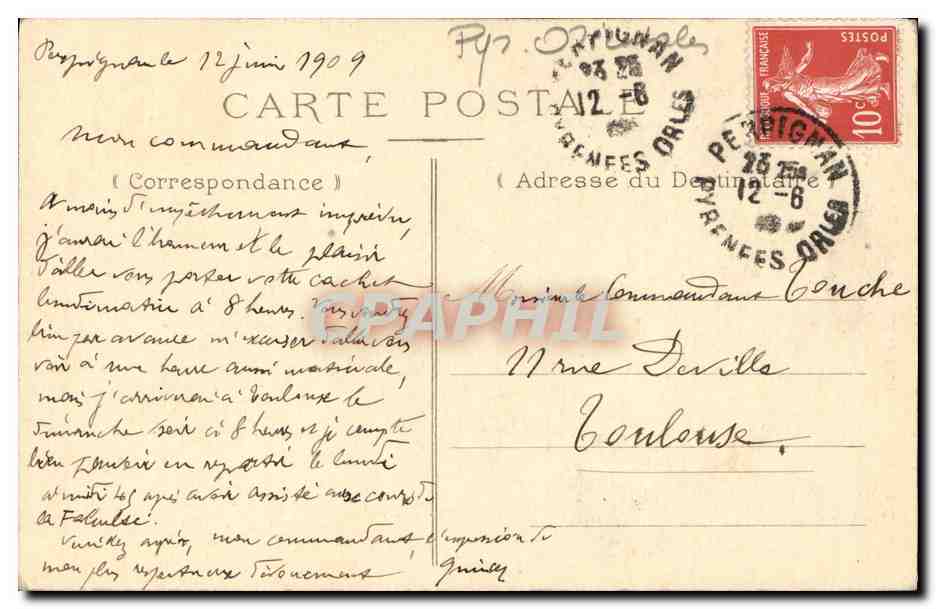 Perpignan le 12 juin 1909
Pyr. Orientales
CARTE POSTALE
mon commandant,
( Correspondance )
( Adresse du Destinataire )
A moins d'empêchement imprévu,
j'aurai l'honneur et le plaisir
d'aller vous porter votre cachet
lundi matin à 8 heures. Vous voudrez
bien par avance m'excuser d'aller vous
voir à une heure aussi matinale,
mais j'arriverai à Toulouse le
dimanche soir à 8 heures et je compte
bien pouvoir en repartir le lundi
à midi 45 après avoir assisté au cours de
la Faculté.
Veuillez agréer, mon commandant, l'expression de
mon plus respectueux dévouement
Monsieur le Commandant Touche
11 rue Deville
Toulouse.
PERPIGNAN
23 25
12 -6
PYRENEES ORLES
PERPIGNAN
23 25
12 -6
PYRENEES ORLES
REPUBLIQUE FRANÇAISE
POSTES
10 c
CPAPHIL